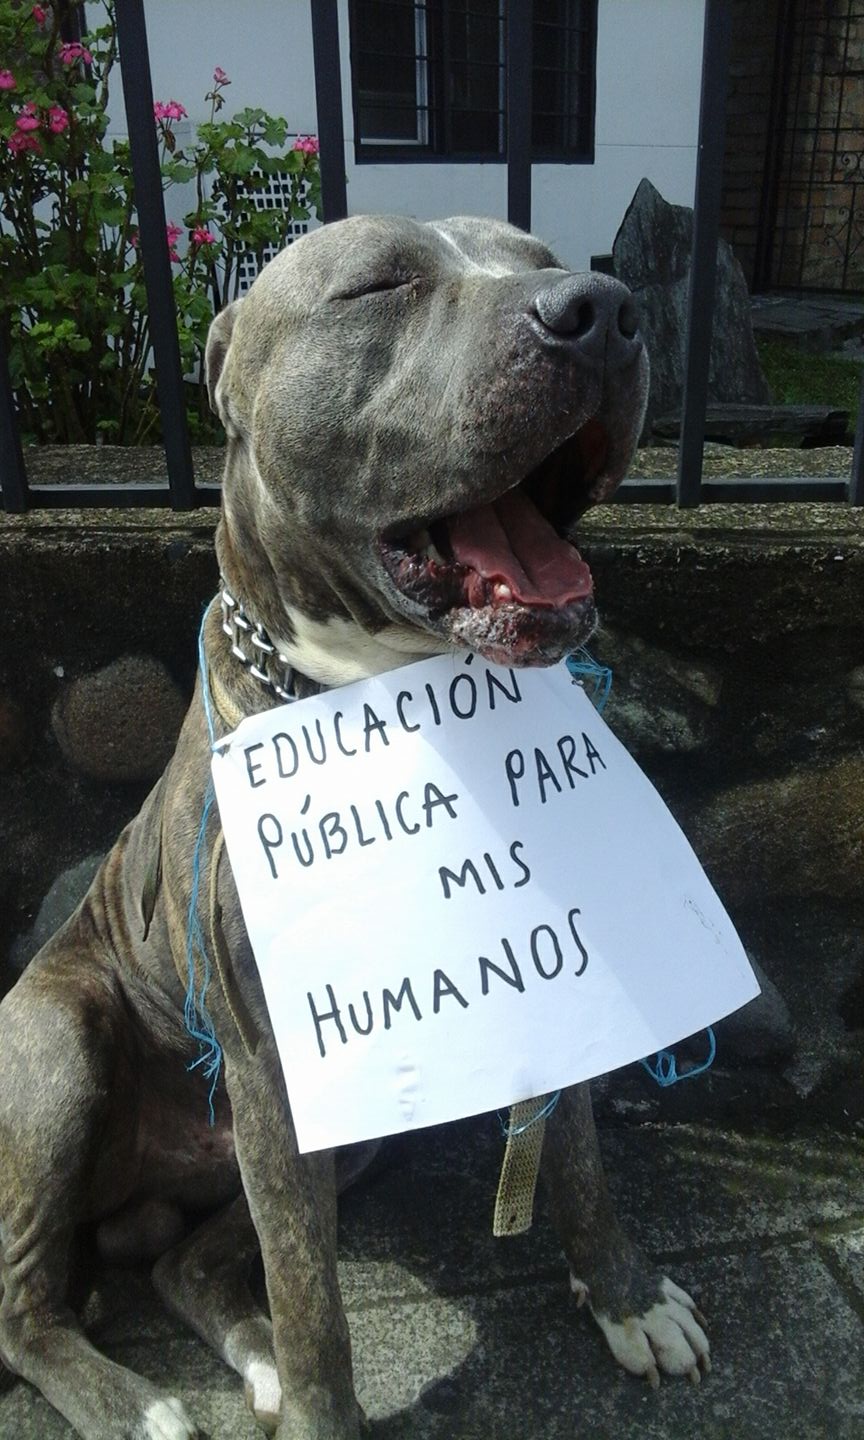 EDUCACIÓN
PÚBLICA PARA
MIS
HUMANOS